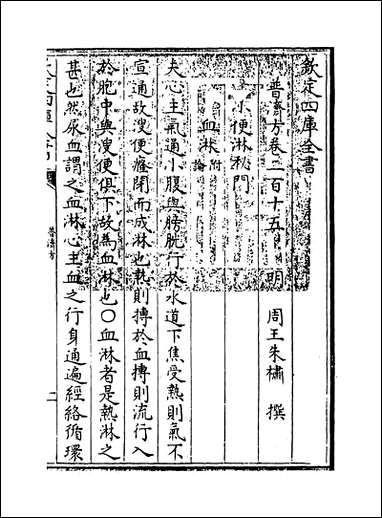 欽定四庫全書
普濟方卷二百十五　明　周王朱橚　撰
小便淋秘門
血淋附論
夫心主氣通小腹與膀胱行於水道下焦受熱則氣不
宣通故溲便癃閉而成淋也熱則搏於血搏則流行入
於胞中與溲便俱下故為血淋也〇血淋者是熱淋之
甚也然尿血謂之血淋心主血之行身通遍經絡循環
普濟方